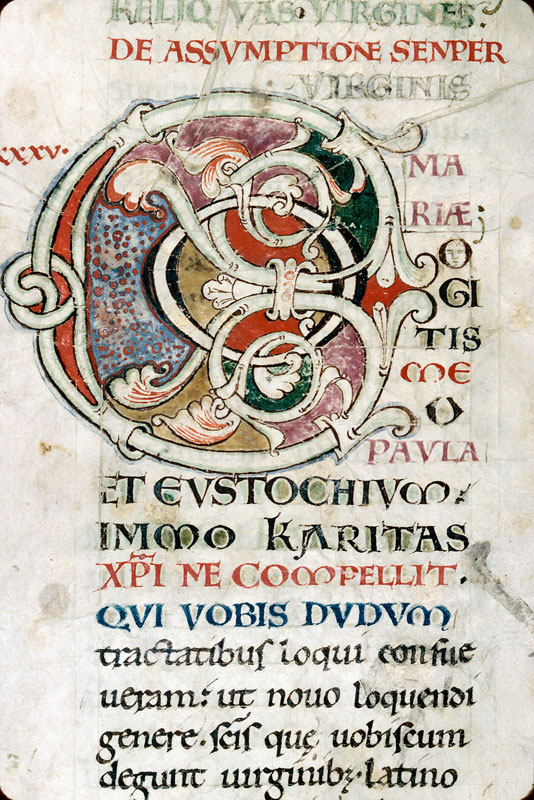 RELIQVAS VIRGINES.
DE ASSVMPTIONE SENPER
VIRGINIS
XXXV.
MA
RIÆ;
C O
GI
TIS
ME
O
PAVLA
ET EVSTOCHIVM;
IMMO KARITAS
XP̄I ME COMPELLIT.
QVI VOBIS DVDVM
tractatibus loqui consue
ueram: ut nouo loquendi
genere. sc̄is que uobiscum
degunt uirginibꝫ. latino